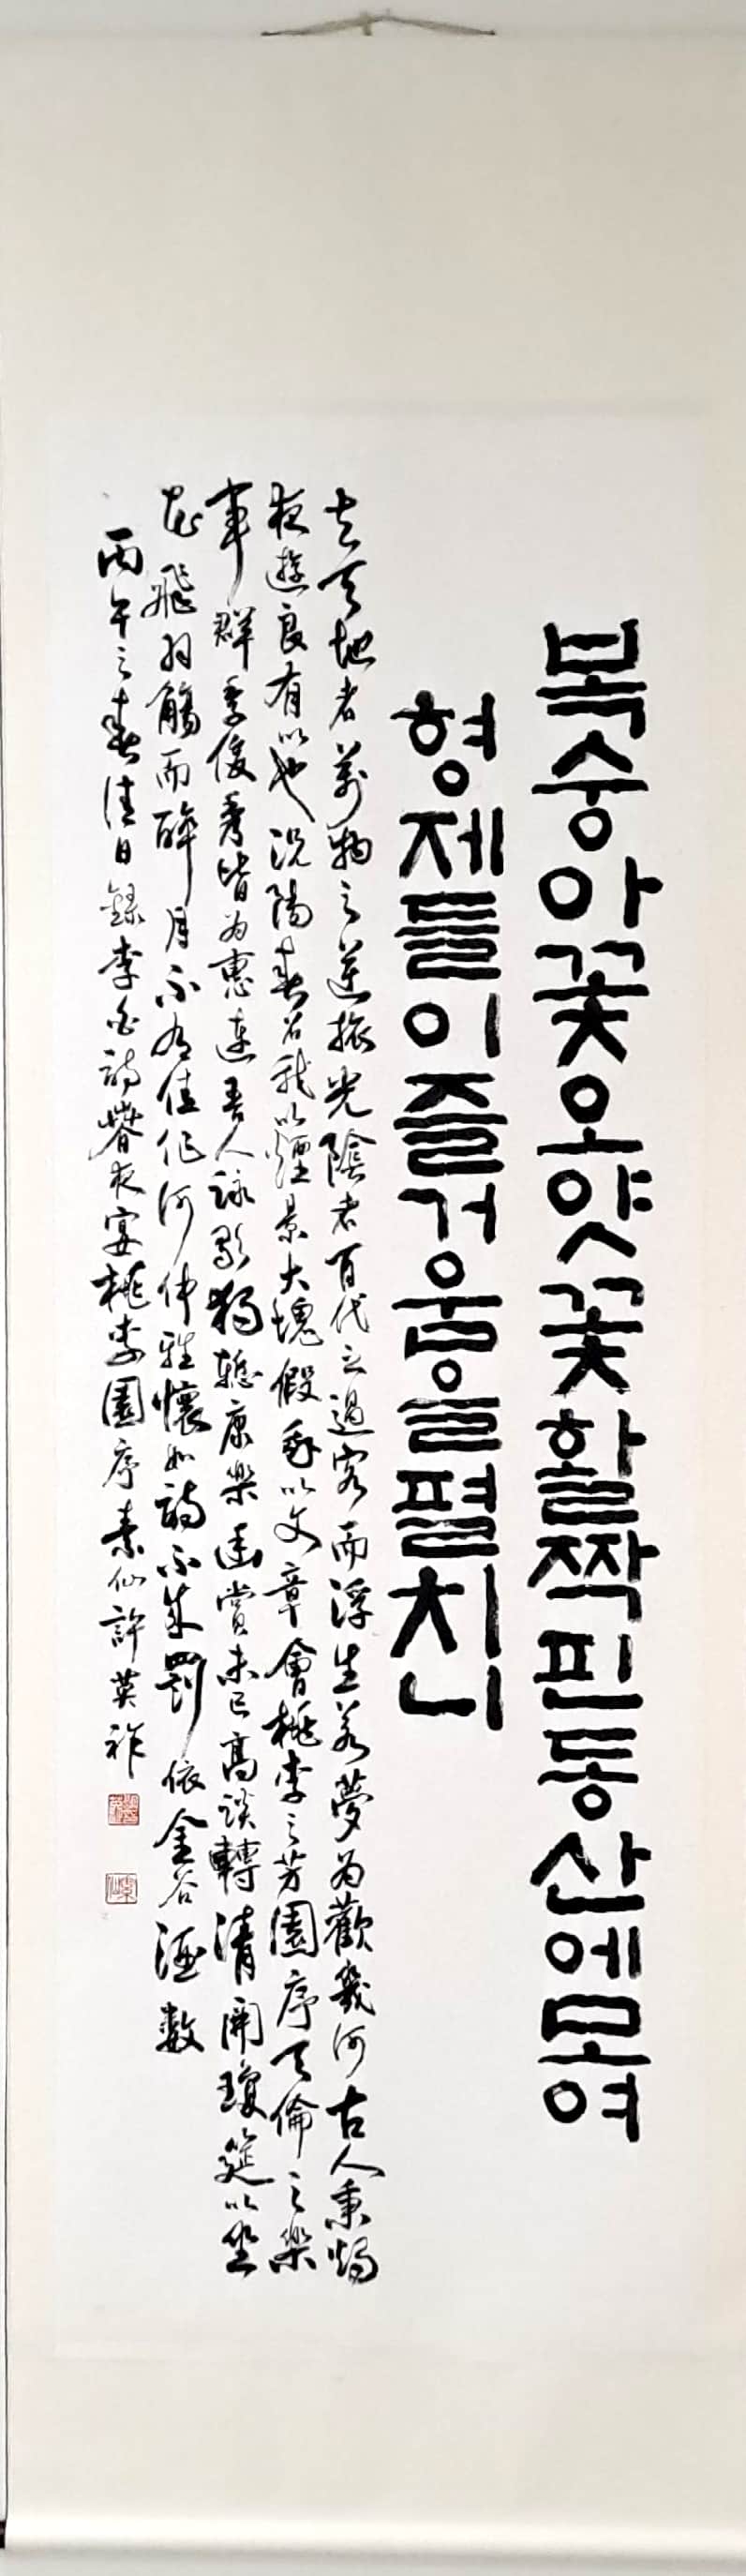 복숭아꽃오얏꽃활짝핀동산에모여
형제들이즐거움을펼친
夫天地者萬物之逆旅光陰者百代之過客而浮生若夢為歡幾何古人秉燭
夜遊良有以也況陽春召我以煙景大塊假我以文章會桃李之芳園序天倫之樂
事群季俊秀皆為惠連吾人詠歌獨慙康樂幽賞未已高談轉清開瓊筵以坐
花飛羽觴而醉月不有佳作何伸雅懷如詩不成罰依金谷酒數
丙午之春佳日錄李白詩春夜宴桃李園序素仙許英